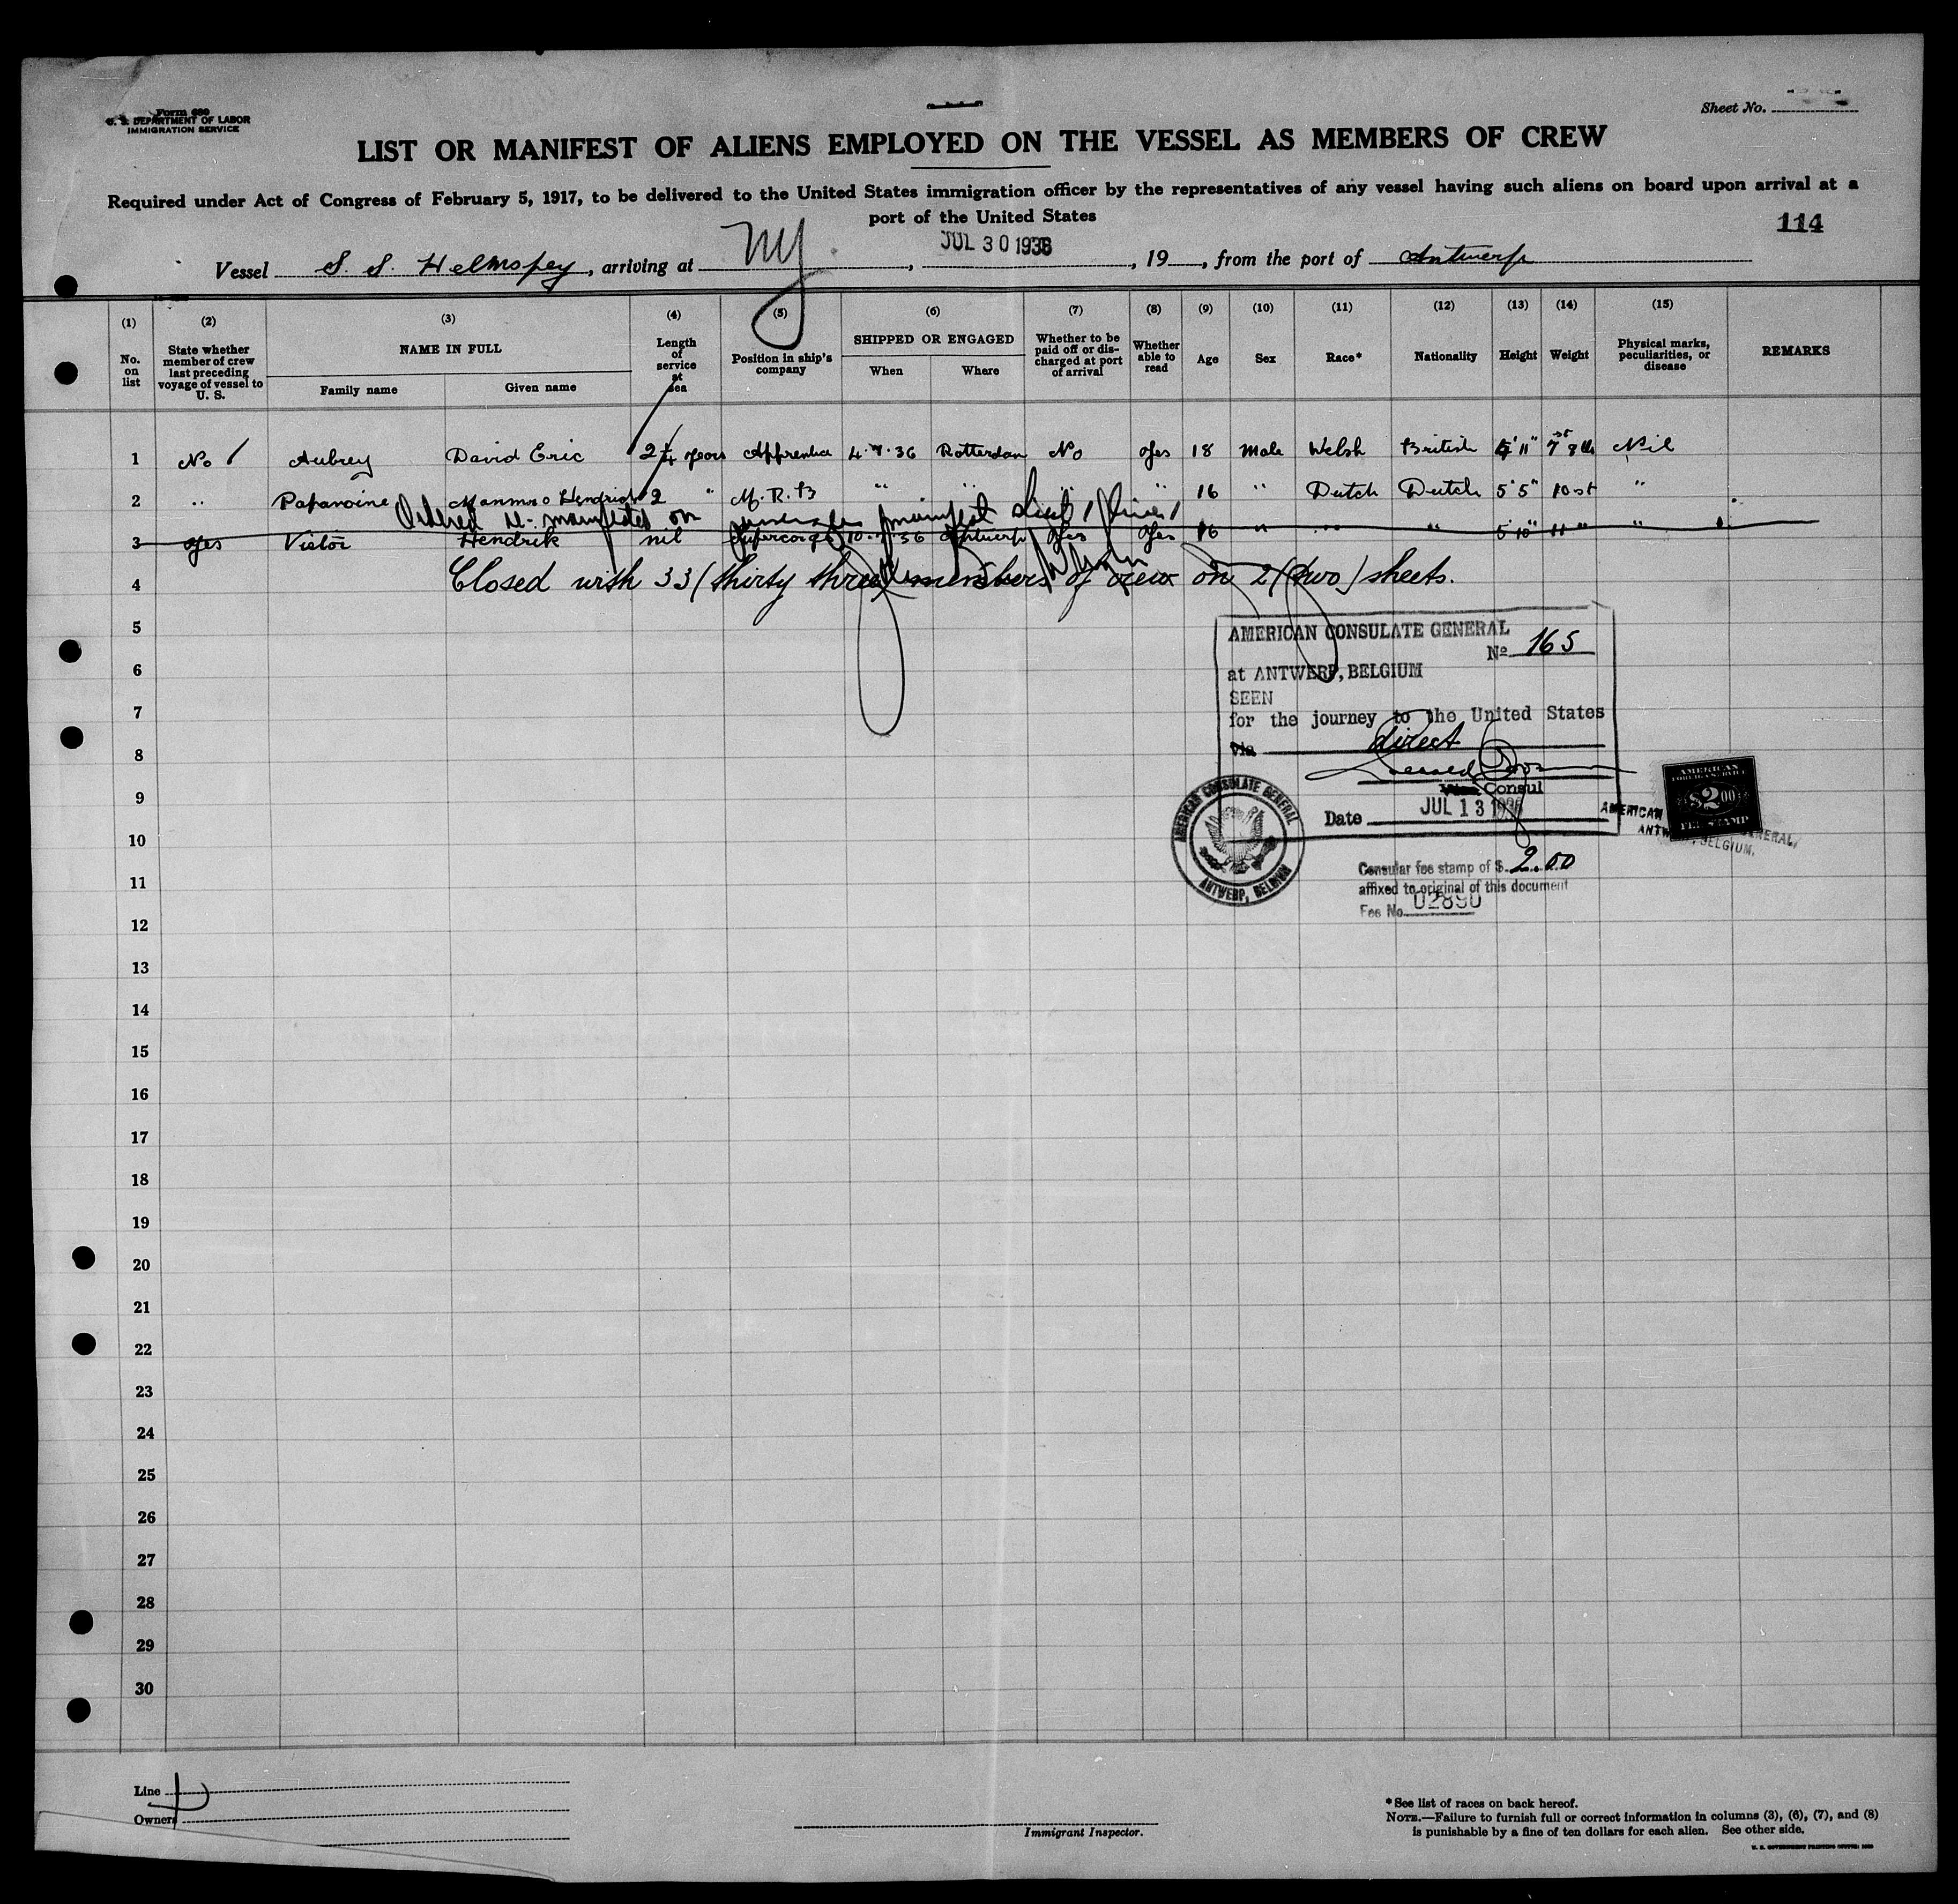 Form 680
U. S. DEPARTMENT OF LABOR
IMMIGRATION SERVICE
Sheet No.
LIST OR MANIFEST OF ALIENS EMPLOYED ON THE VESSEL AS MEMBERS OF CREW
Required under Act of Congress of February 5, 1917, to be delivered to the United States immigration officer by the representatives of any vessel having such aliens on board upon arrival at a
port of the United States
114
Vessel S. S. Helmspey, arriving at NY, JUL 30 1936, 19, from the port of Antwerp
(1) (2) (3) (4) (5) (6) (7) (8) (9) (10) (11) (12) (13) (14) (15)
No. on list
State whether member of crew last preceding voyage of vessel to U. S.
NAME IN FULL
Family name Given name
Length of service at sea
Position in ship's company
SHIPPED OR ENGAGED
When Where
Whether to be paid off or discharged at port of arrival
Whether able to read
Age
Sex
Race*
Nationality
Height
Weight
Physical marks, peculiarities, or disease
REMARKS
1 No Aubrey David Eric 2¼ years Apprentice 4.7.36 Rotterdam No Yes 18 Male Welsh British 11" 7 st 8 lb Nil
2 " Papanoine Hendrick 2 " M.R.B " " " " 16 " Dutch Dutch 5'5" 10 st "
Ordered re-manifested on manifest sheet 1 line 1
3 Yes Victor Hendrik nil Supercargo 10.7.36 Antwerp Yes Yes " " " 5'10" 11 " "
4 Closed with 33 (thirty three) members of crew on 2 (two) sheets.
5
AMERICAN CONSULATE GENERAL
No 165
6
at ANTWERP, BELGIUM
SEEN
7
for the journey to the United States
8
via direct
9
Vice Consul
Date JUL 13 1936
AMERICAN CONSULATE GENERAL
ANTWERP, BELGIUM
AMERICAN
FOREIGN SERVICE
$2.00
FEE STAMP
AMERICAN GENERAL,
ANTW , BELGIUM.
10
11
Consular fee stamp of $ 2.00
affixed to original of this document
Fee No. 02890
12
13
14
15
16
17
18
19
20
21
22
23
24
25
26
27
28
29
30
Line
Owners
Immigrant Inspector.
*See list of races on back hereof.
NOTE.—Failure to furnish full or correct information in columns (3), (6), (7), and (8)
is punishable by a fine of ten dollars for each alien. See other side.